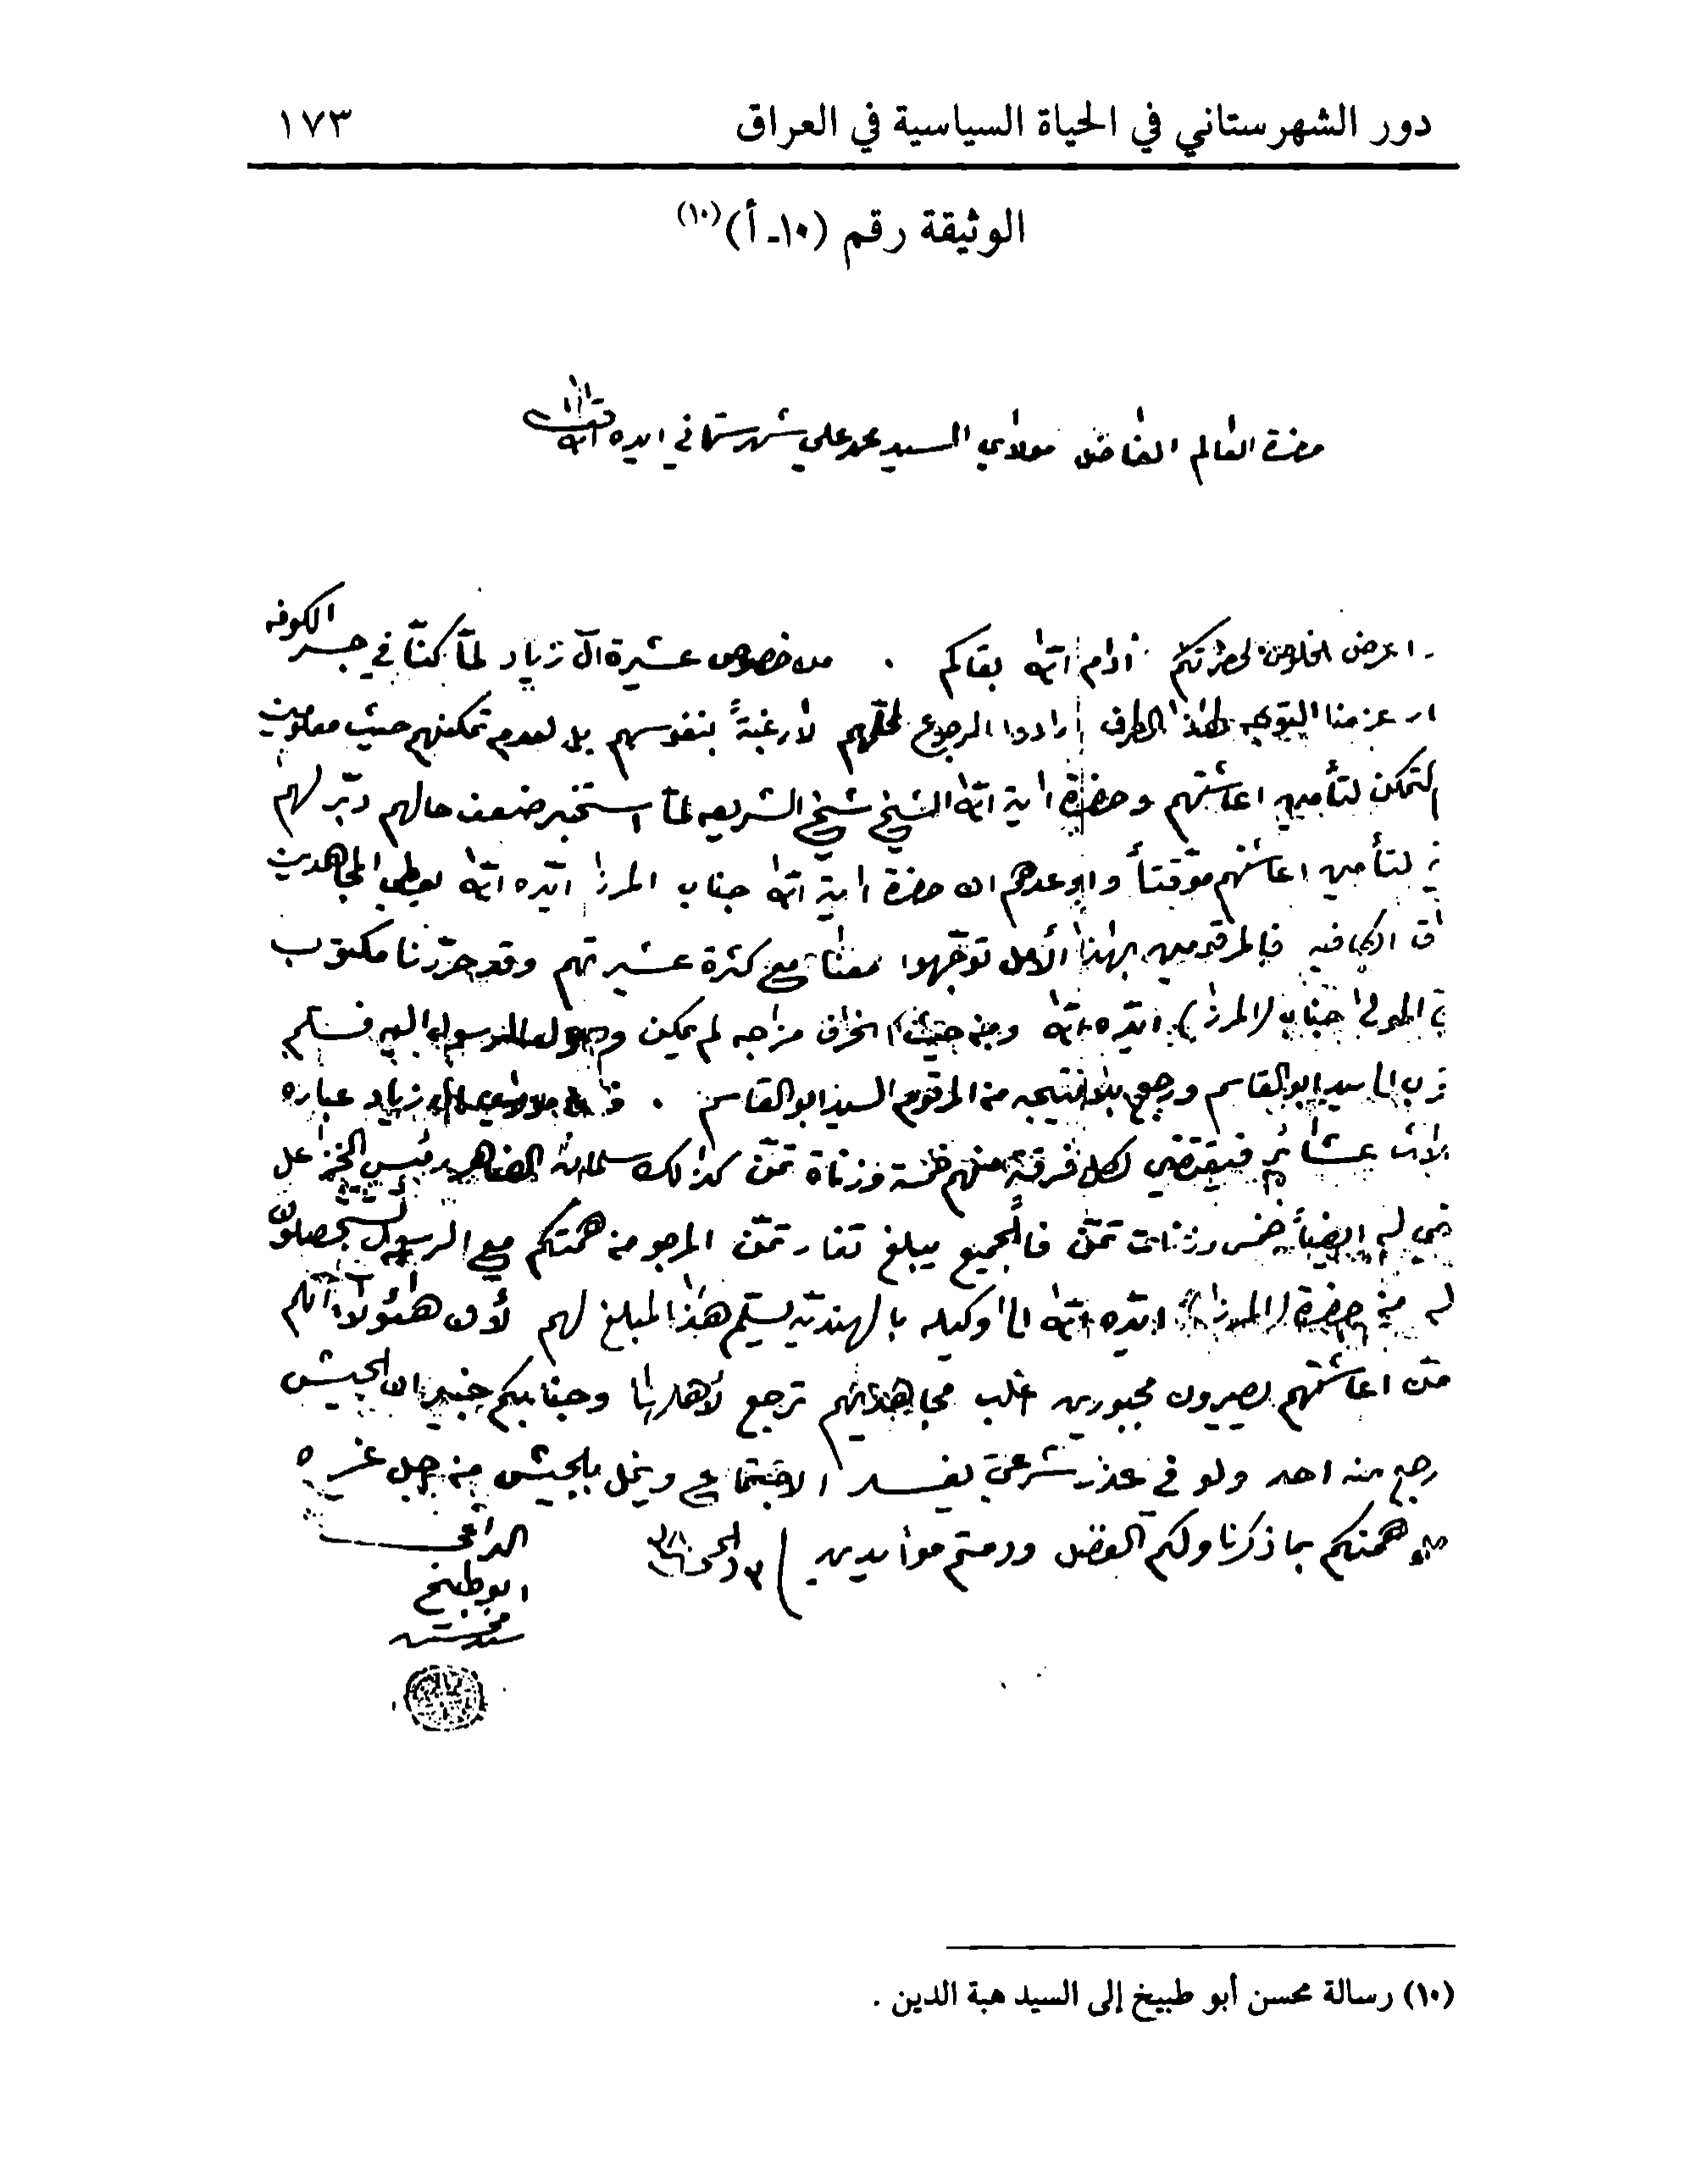 دور الشهرستاني في الحياة السياسية في العراق ١٧٣
الوثيقة رقم (١٠ـ أ)(١٠)
حضرة العالم الفاضل مولاي السيد محمد علي شهرستاني ايده الله تعالى
اعرض الخلوص لحضرتكم ادام الله بقاكم . من خصوص عشيرة آل زياد لمّا كنّا في جسر الكوفه
عزمنا التوجه لهذا الطرف ارادوا الرجوع لمحلّهم لا رغبةً بنفوسهم بل لعدم تمكنهم حيث معلومين
التمكن لتأمين اعاشتهم وحضرة اية الله الشيخ شيخ الشريعه لمّا استخبر ضعف حالهم دبّر لهم
لتأمين اعاشتهم موقتاً واوعدهم ان حضرة اية الله جناب المرزا ايّده الله يعطي المجاهدين
الكافيه فالمرقومين بهذا الأمل توجّهوا معنا مع كثرة عشيرتهم وقد حرّرنا مكتوب
المولى جناب (المرزا) ايّده الله ومن حيث انحراف مزاجه لم يمكن وصول الرسول اليه فسلم
الى سيد ابو القاسم ورجع بلا نتيجه من المرقوم السيد ابو القاسم . زياد عباره
عشائر فيقتضي لكل فرقة منهم خمسة وزناة تمّن كذالك سلمان الضاهر رئيس الخزاعل
له ايضاً خمس وزنات تمّن فالجميع يبلغ تغار تمّن المرجو من همتكم مع الرسول تحصلون
له من حضرة (المرزا) ايّده الله الى وكيله بالهنديّه يسلّم هذا المبلغ لهم لأن هئولاء انلم
اعاشتهم يصيرون مجبورين اغلب مجاهدينهم ترجع لأهاليها وجنابكم خبير ان الجيش
رجع منه احد ولو في عذر شرعيّ يفسد الاجتماع ويخل بالجيش من رجل غيره
همتكم بما ذكرنا ولكم الفضل ودمتم موأيدين
الداعي
ابو طبيخ
سيد محسن
(١٠) رسالة محسن أبو طبيخ إلى السيد هبة الدين .